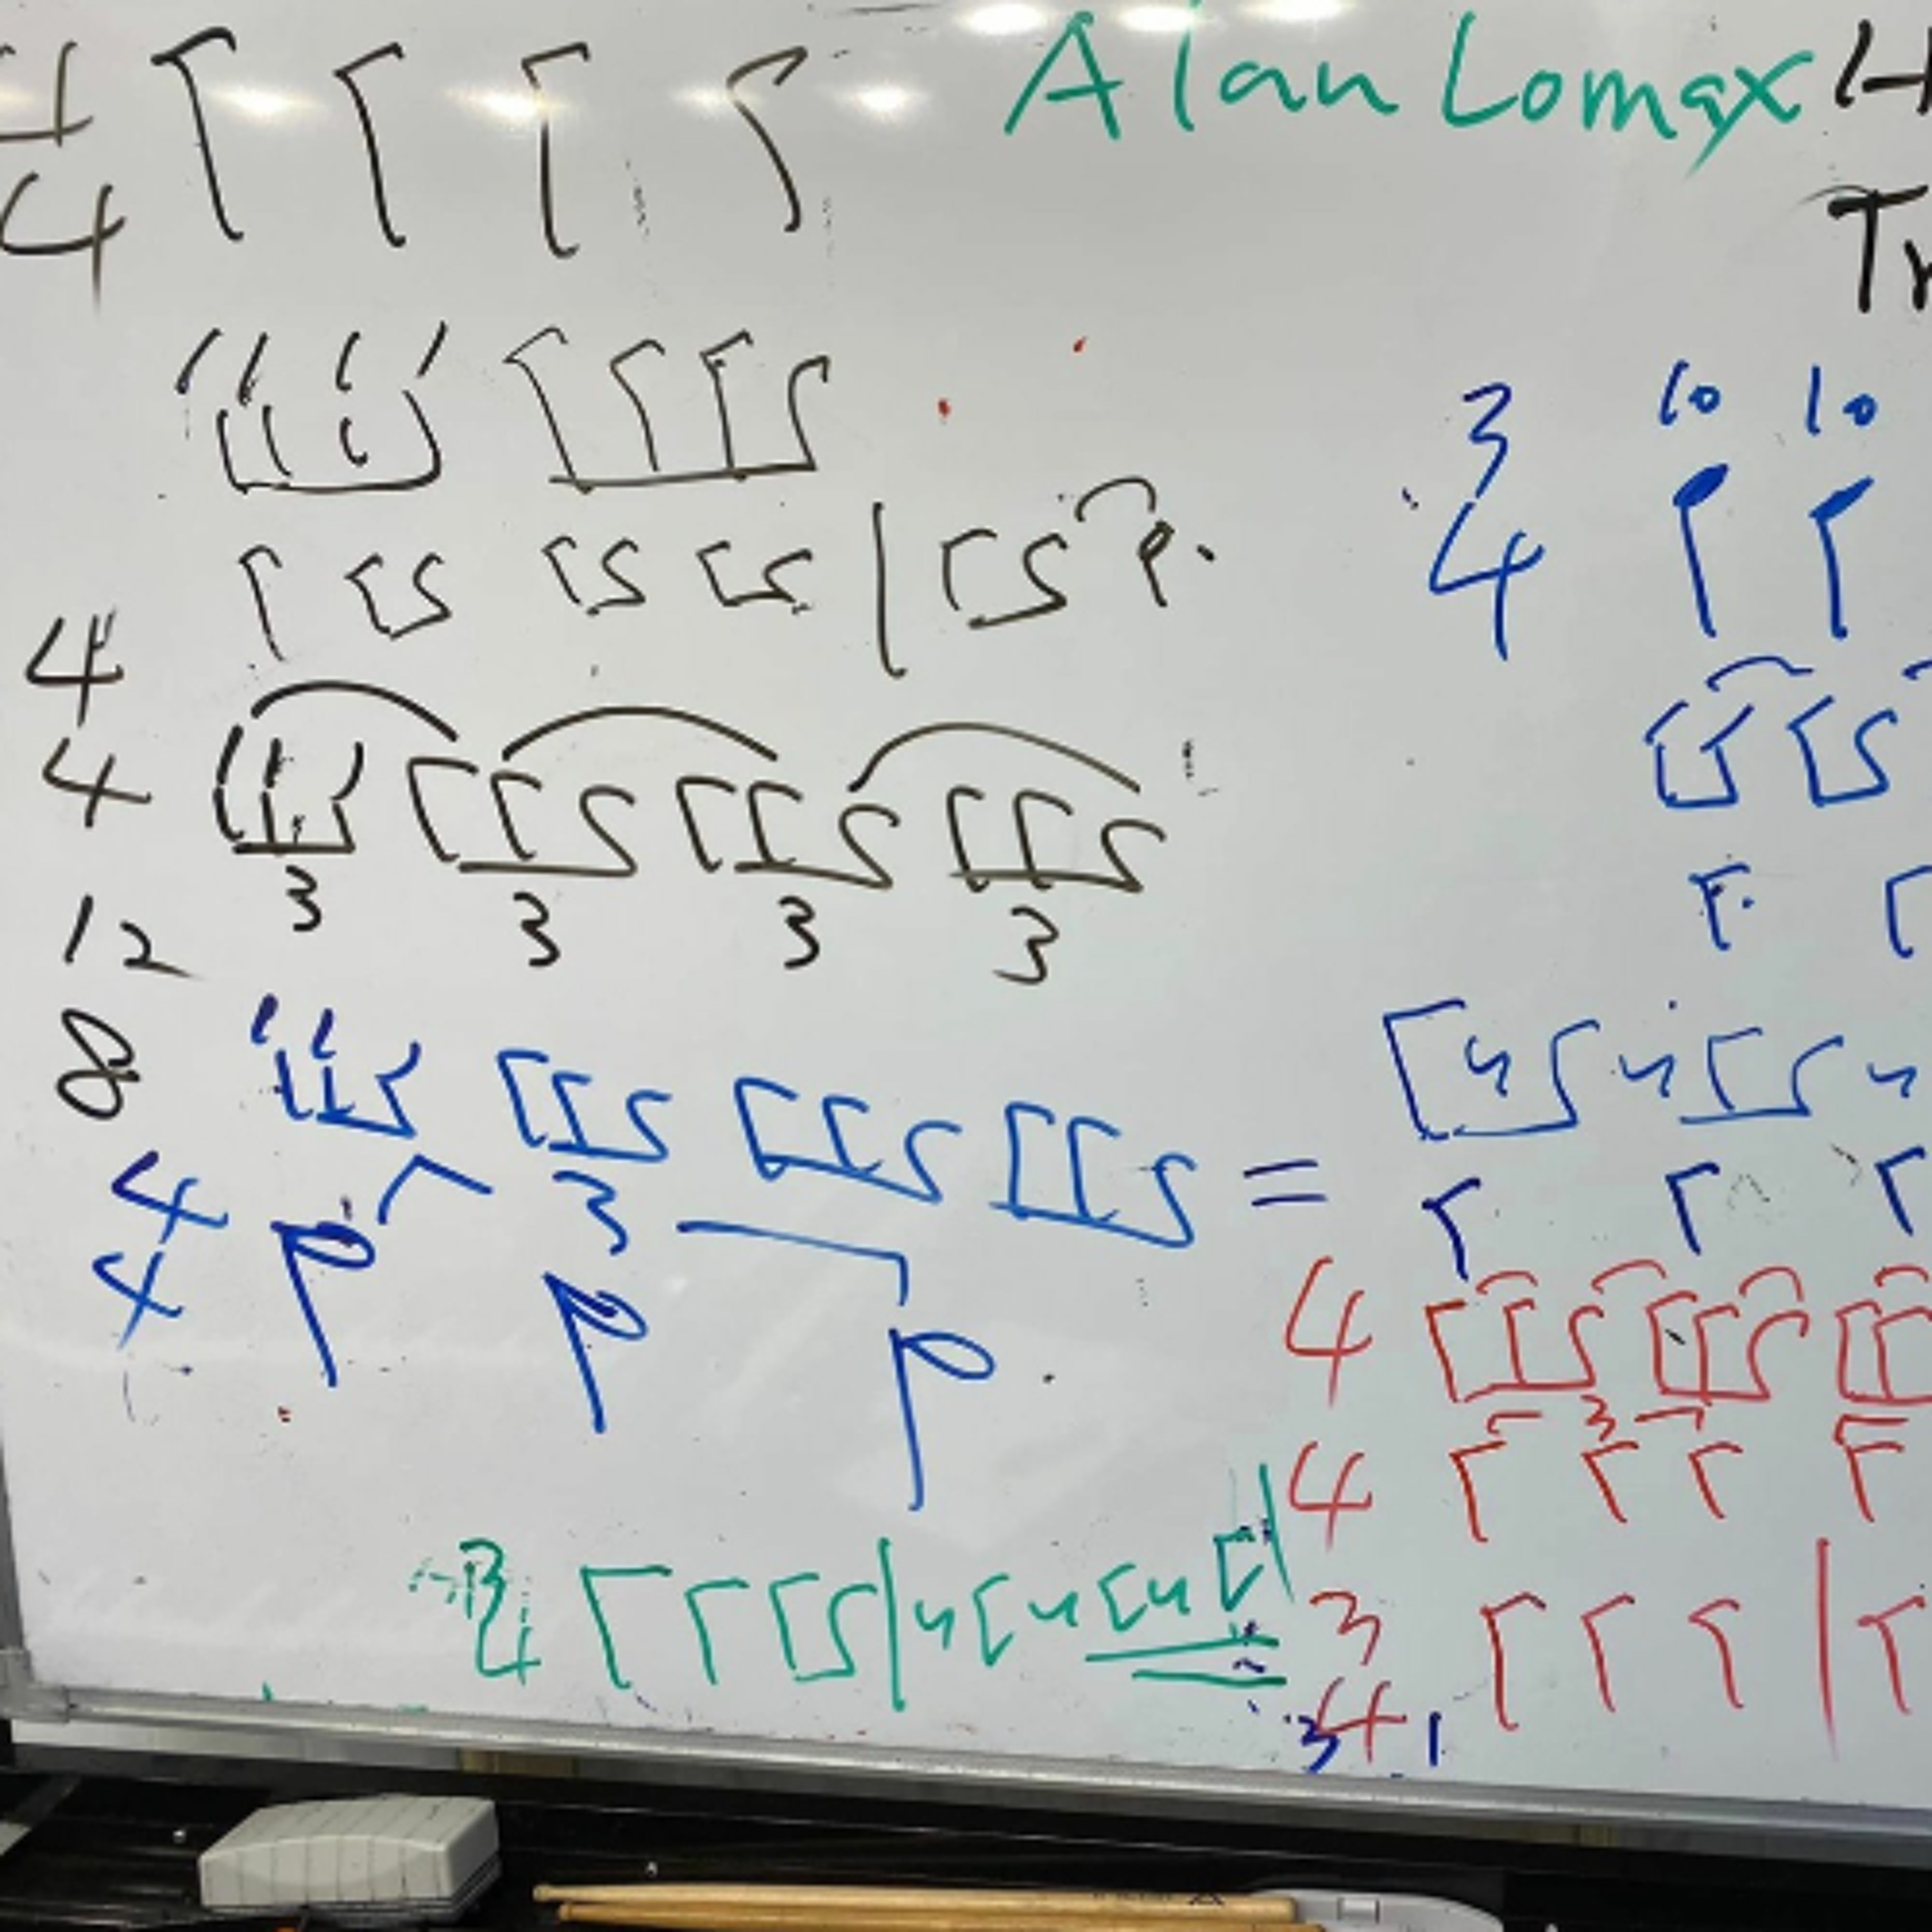 4
4
Alan Lomax
4
Tr
3
4
10 10
4
4
3 3 3 3
12
8
4
4
3
=
4
3
4
3
4
3
4
3 1